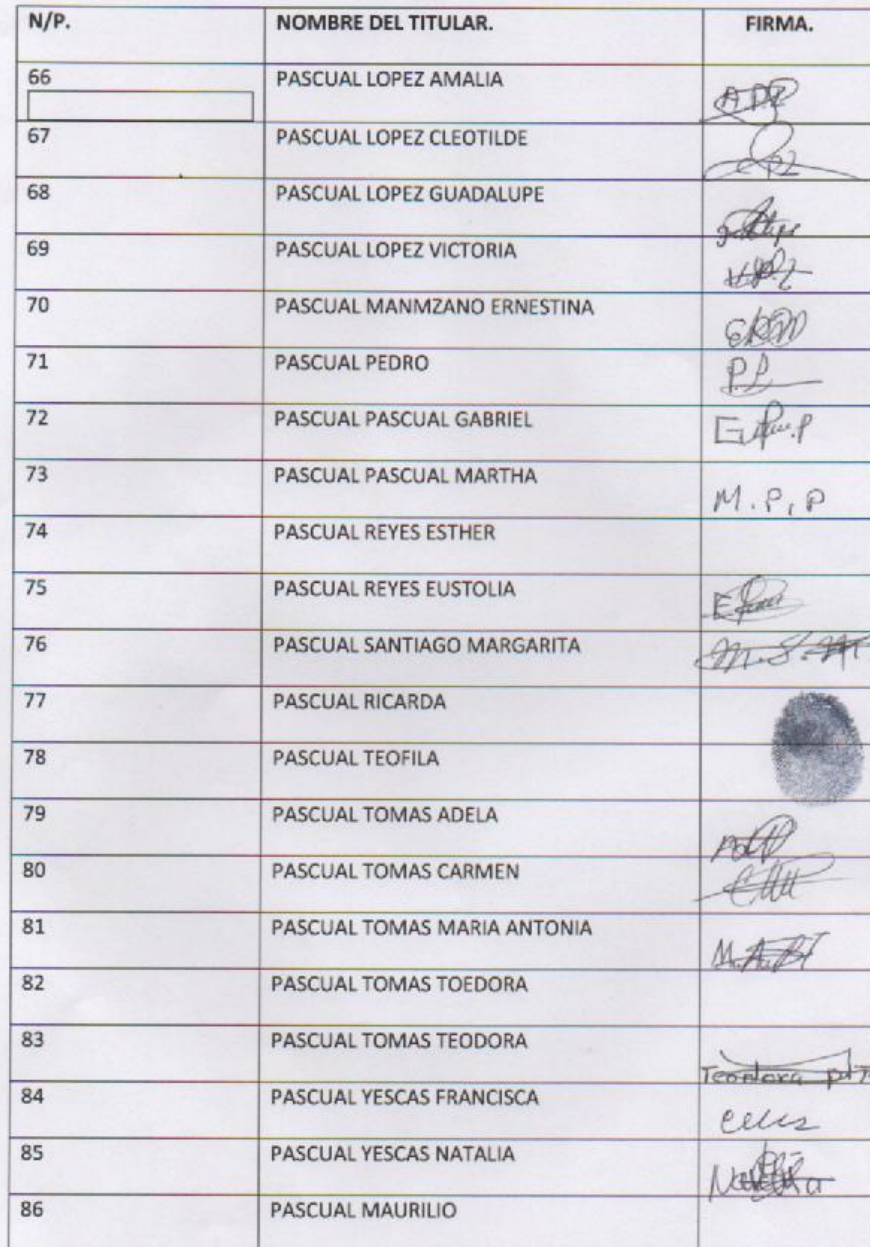 N/P. NOMBRE DEL TITULAR. FIRMA.
66 PASCUAL LOPEZ AMALIA
67 PASCUAL LOPEZ CLEOTILDE
68 PASCUAL LOPEZ GUADALUPE
69 PASCUAL LOPEZ VICTORIA
70 PASCUAL MANMZANO ERNESTINA
71 PASCUAL PEDRO P.P.
72 PASCUAL PASCUAL GABRIEL
73 PASCUAL PASCUAL MARTHA M.P.P
74 PASCUAL REYES ESTHER
75 PASCUAL REYES EUSTOLIA
76 PASCUAL SANTIAGO MARGARITA
77 PASCUAL RICARDA
78 PASCUAL TEOFILA
79 PASCUAL TOMAS ADELA
80 PASCUAL TOMAS CARMEN
81 PASCUAL TOMAS MARIA ANTONIA
82 PASCUAL TOMAS TOEDORA
83 PASCUAL TOMAS TEODORA Teodora P.T
84 PASCUAL YESCAS FRANCISCA
85 PASCUAL YESCAS NATALIA
86 PASCUAL MAURILIO